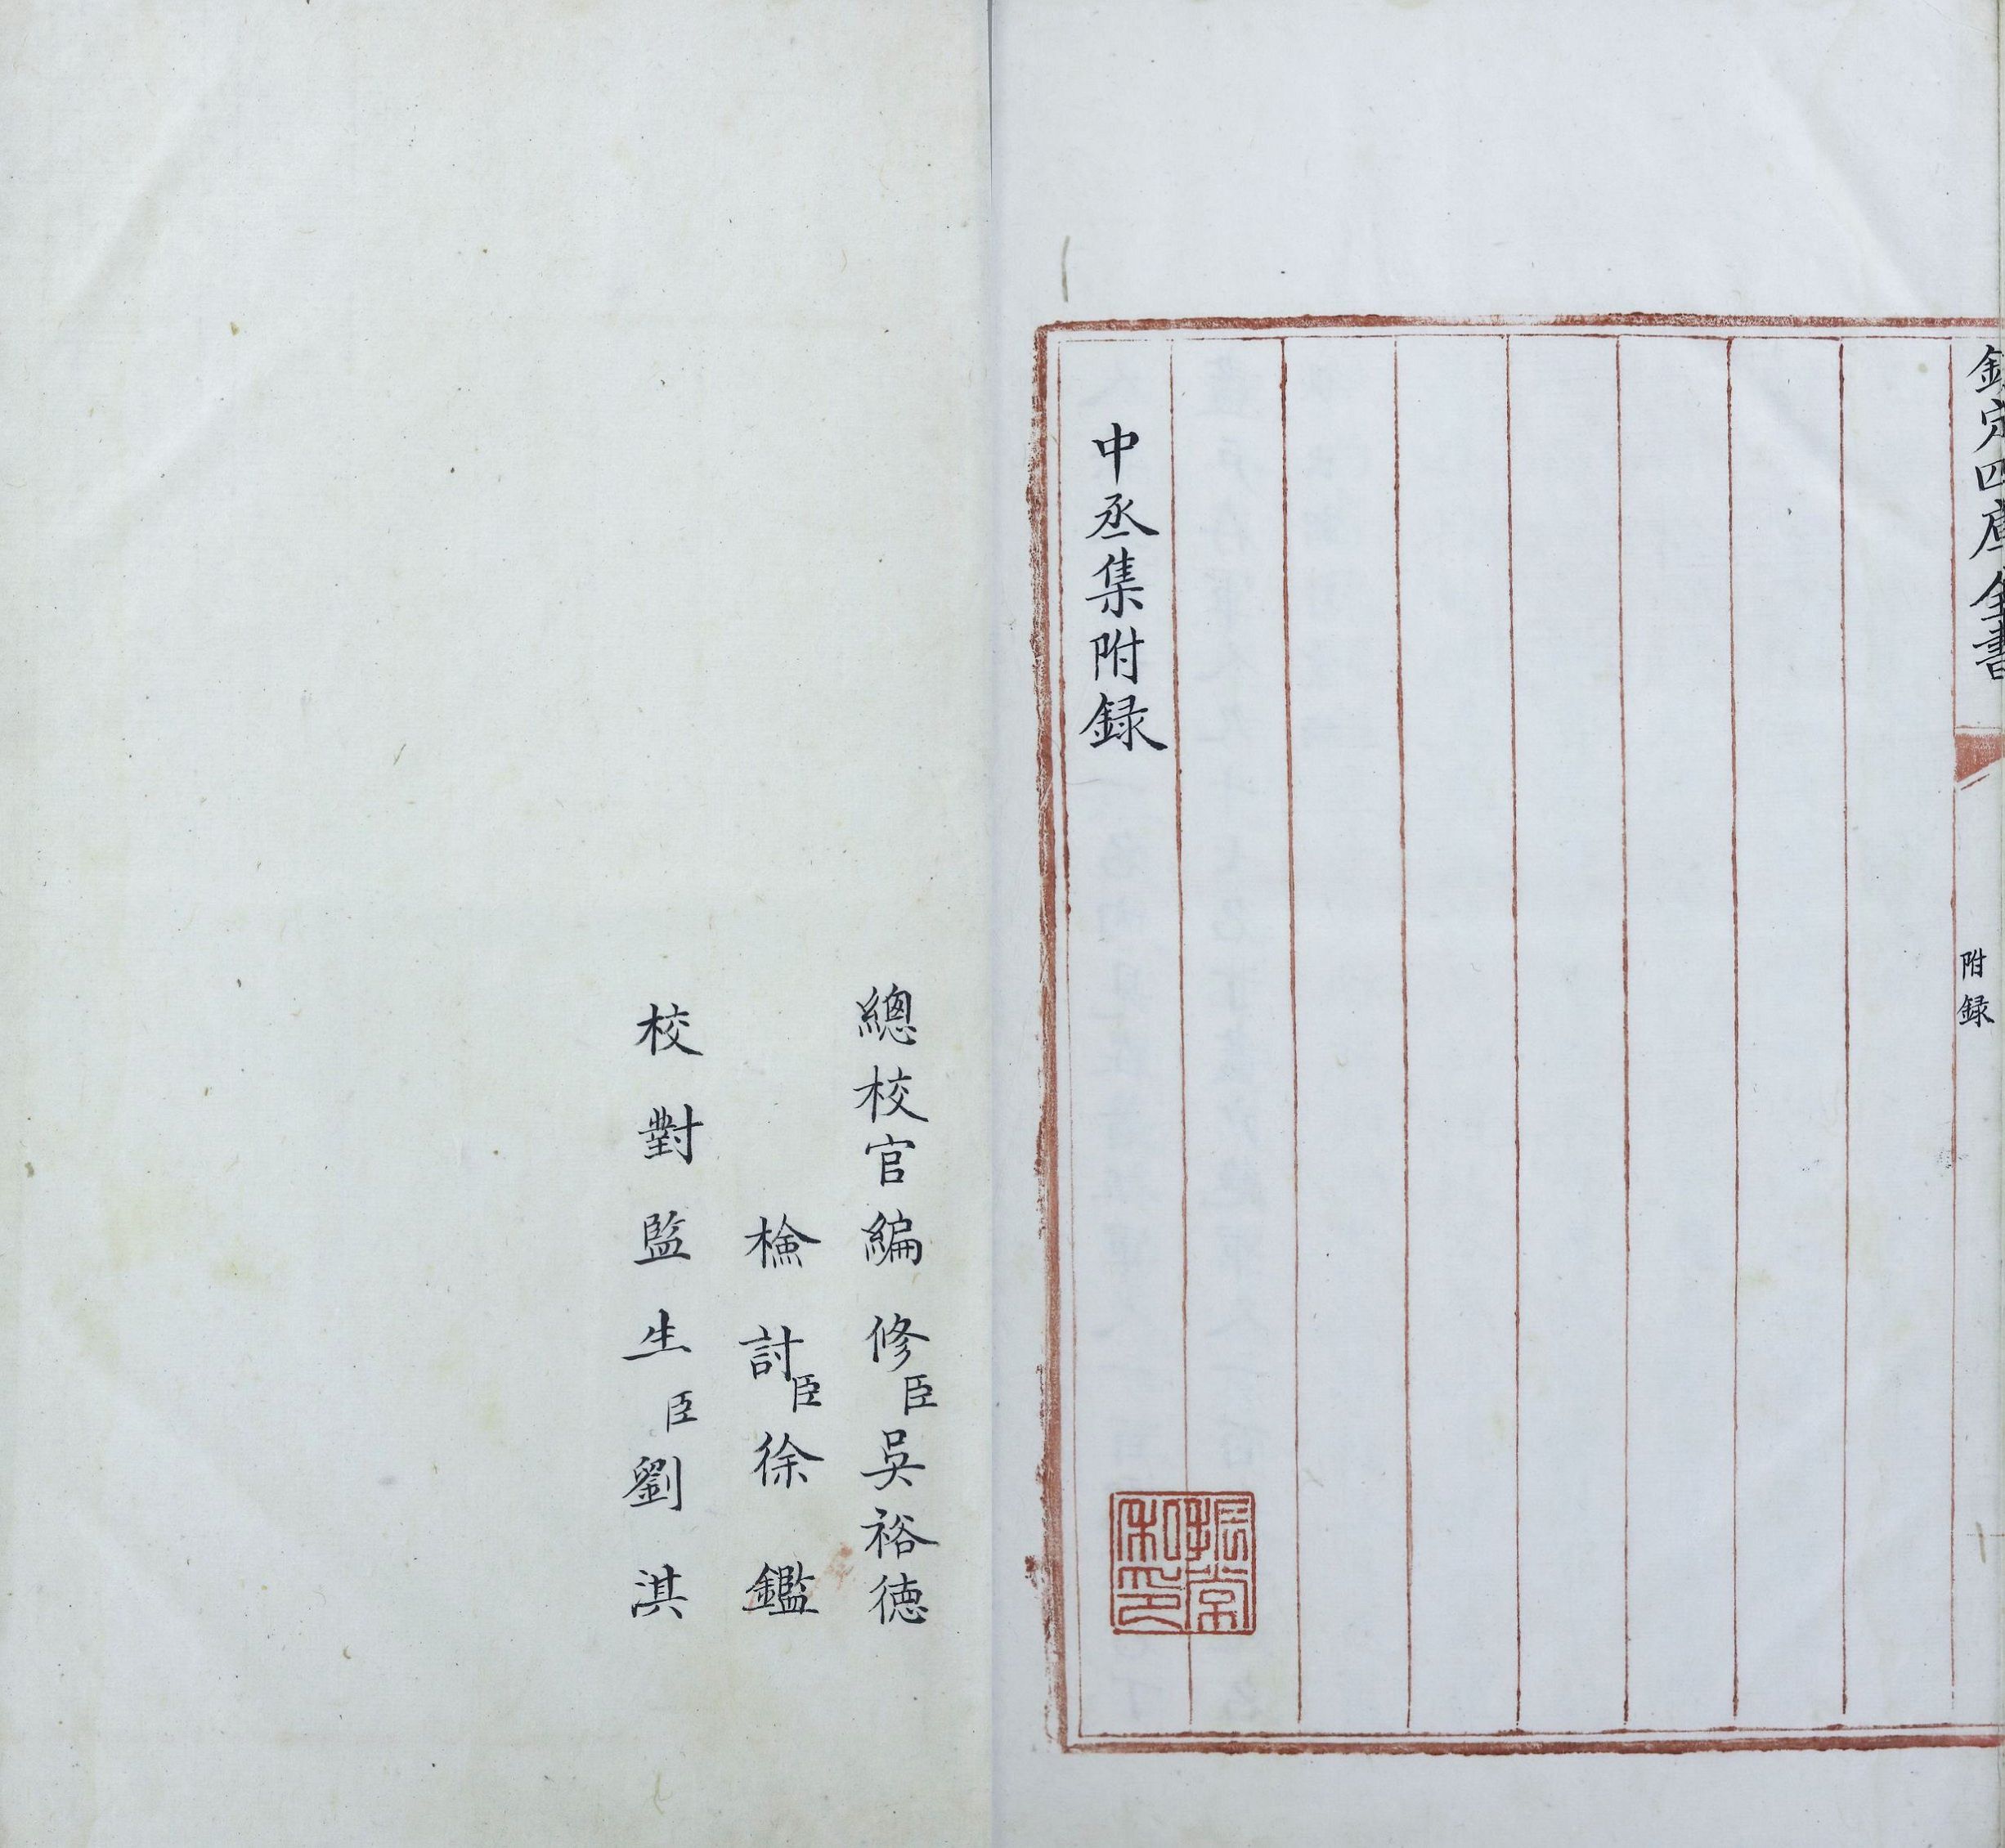 欽定四庫全書
附録
中丞集附録
振常私印
總校官編修臣吳裕徳
檢討臣徐鑑
校對監生臣劉淇